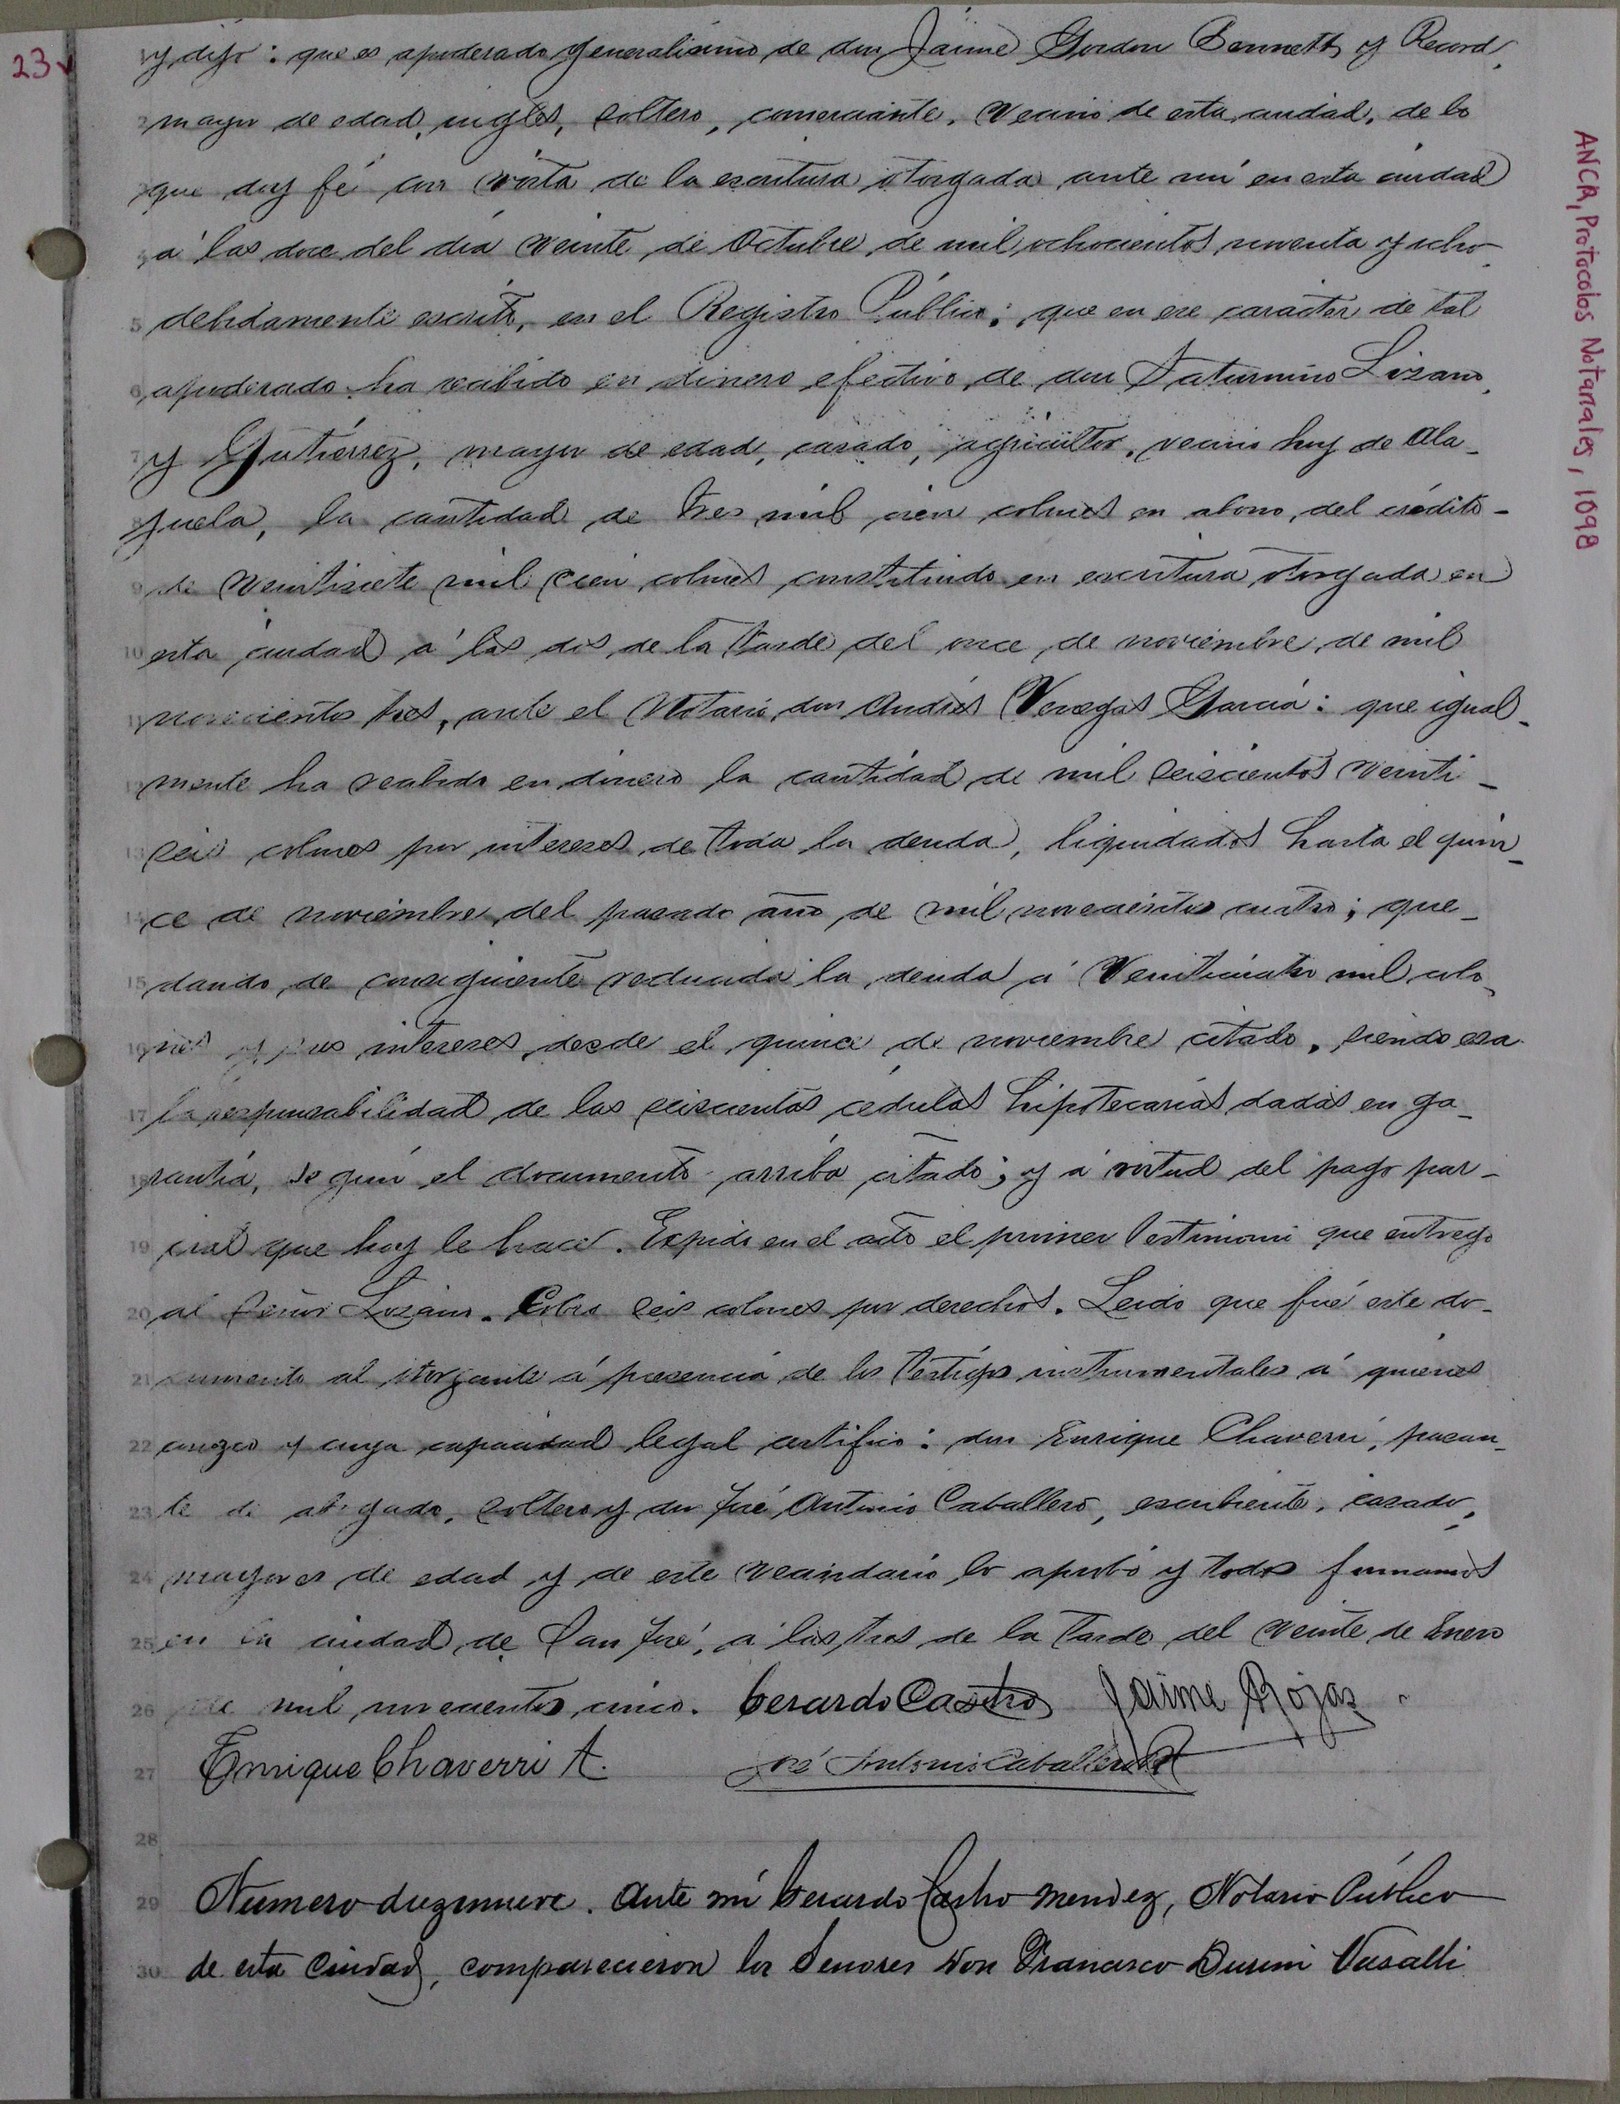 23v
ANCR, Protocolos Notariales, 1098
1 y dijo: que es apoderado generalísimo de don Jaime Gordon Bennett y Record,
2 mayor de edad, inglés, soltero, comerciante, vecino de esta ciudad, de lo
que doy fé con vista de la escritura otorgada ante mí en esta ciudad
á las doce del día veinte de Octubre de mil ochocientos noventa y ocho
5 debidamente escrito, en el Registro Público; que en ese caracter de tal
6 apoderado ha recibido en dinero efectivo de don Saturnino Lizano
7 y Gutiérrez, mayor de edad, casado, agricultor, vecino hoy de Ala-
juela, la cantidad de tres mil cien colones en abono del crédito-
9 de veintisiete mil cien colones constituido en escritura otorgada en
10 esta ciudad á las dos de la tarde del once de noviembre de mil
11 novecientos tres, ante el Notario don Andrés Venegas García: que igual-
12 mente ha recibido en dinero la cantidad de mil seiscientos veinti-
13 seis colones por intereses de toda la deuda, liquidados hasta el quin-
14 ce de noviembre del pasado año de mil novecientos cuatro; que-
15 dando de consiguiente reducida la deuda á veinticuatro mil colo-
16 nes y sus intereses desde el quince de noviembre citado, siendo esa
17 la responsabilidad de las seiscientas cédulas hipotecarias dadas en ga-
18 rantía, según el documento arriba citado; y á virtud del pago par-
19 cial que hoy le hace. Expido en el acto el primer testimonio que entrego
20 al señor Lizano. Cobro seis colones por derechos. Leido que fué este do-
21 cumento al otorgante á presencia de los testigos instrumentales á quienes
22 conozco y cuya capacidad legal certifico: don Enrique Chaverri, pasan-
23 te de abogado, soltero y don José Antonio Caballero, escribiente, casado,
24 mayores de edad y de este vecindario lo aprobó y todos firmamos
25 en la ciudad de San José, á las tres de la tarde del veinte de Enero
26 de mil novecientos cinco. Gerardo Castro Jaime Rojas
27 Enrique Chaverri A. José Antonio Caballero
28
29 Numero diez nueve. Ante mí Gerardo Castro Mendez, Notario Público
30 de esta Ciudad, comparecieron los Senores Don Francisco Durini Vasalli